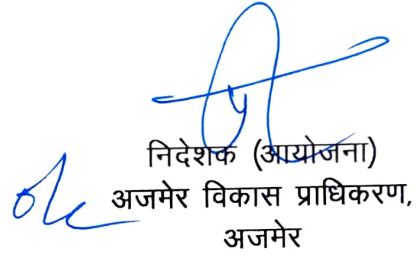 निदेशक (आयोजना)
अजमेर विकास प्राधिकरण,
अजमेर